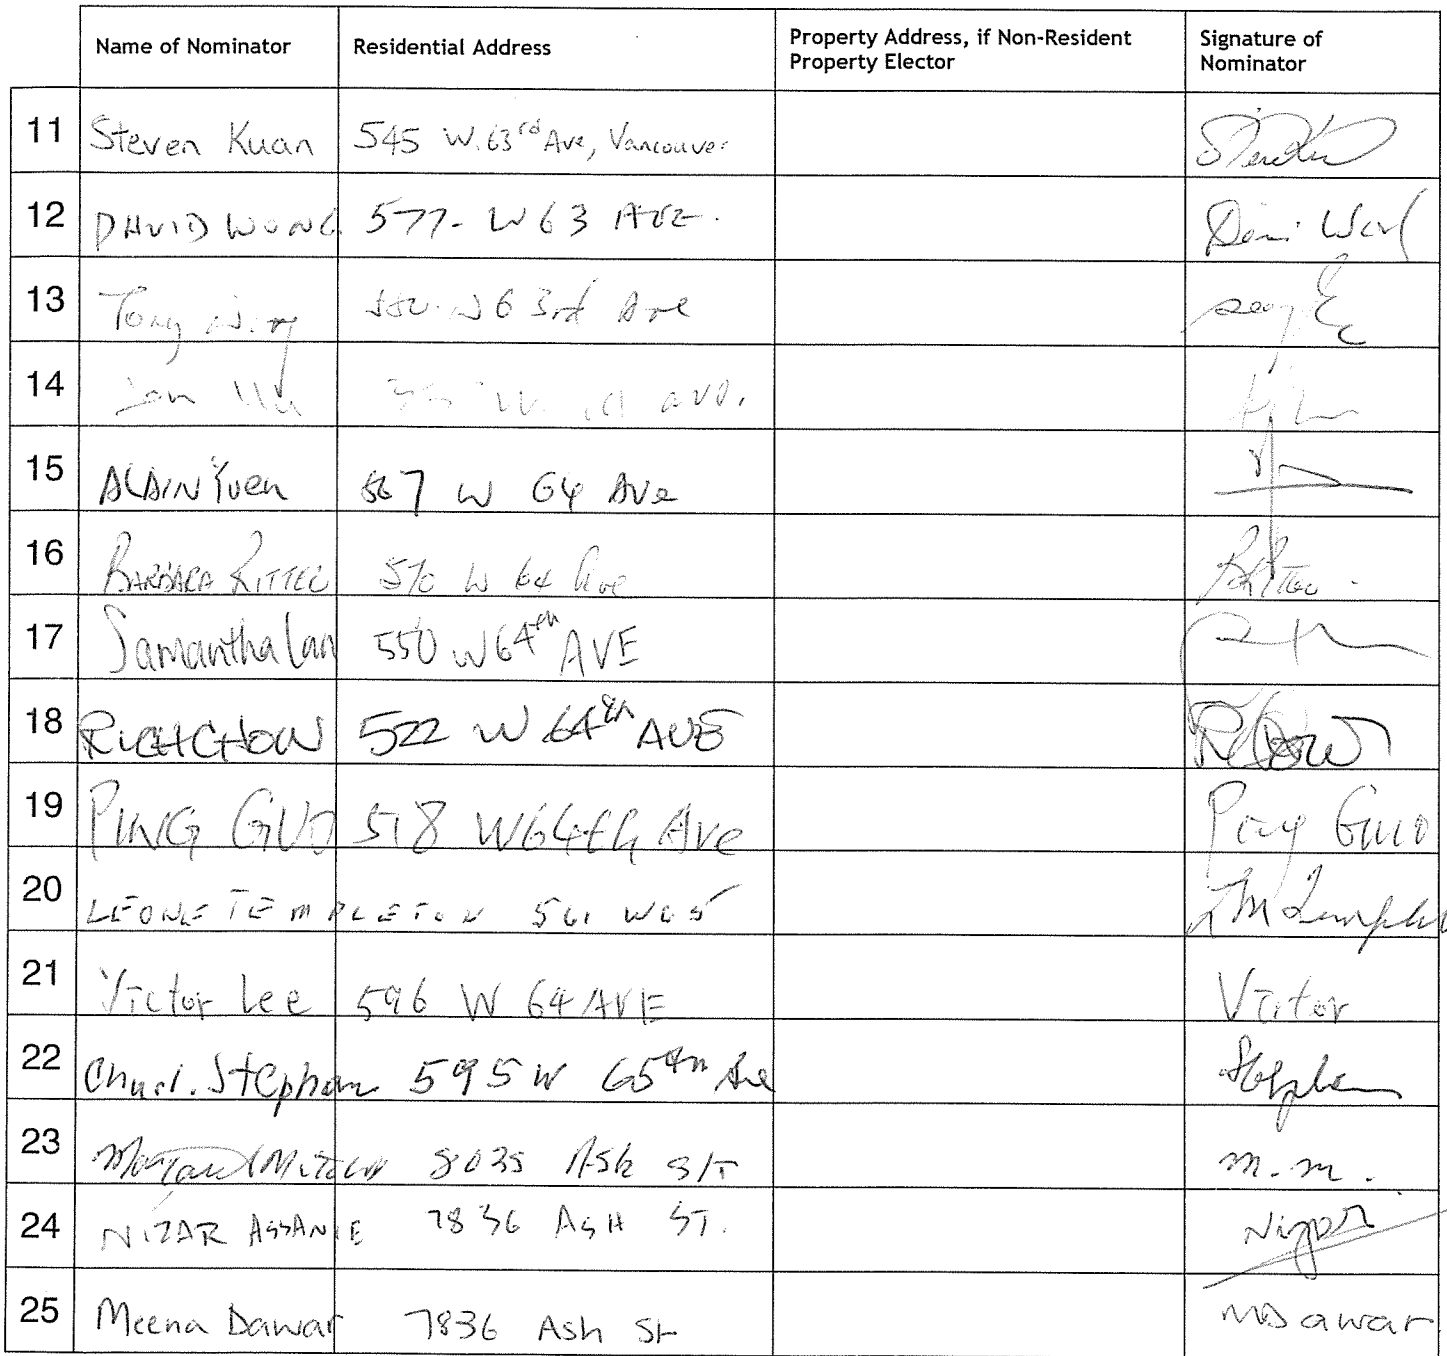 Name of Nominator Residential Address Property Address, if Non-Resident Property Elector Signature of Nominator
11 Steven Kuan 545 W. 63rd Ave, Vancouver
12 DAVID WONG 577- W 63 AVE.
13 Tony W 63rd Ave
14 ave.
15 ALAIN Yuen 567 W 64 Ave
16 BARBARA 570 W 64 Ave
17 Samantha Lan 550 W 64th AVE
18 RICH CHOW 522 W 64th AVE R Chow
19 PING GUO 518 W64th Ave Ping Guo
20 LEONE TEMPLETON 561 W65
21 Victor Lee 596 W 64 AVE Victor
22 Stephan 595 W 65th Ave
23 8035 Ash ST m.m.
24 NIZAR ASSANIE 7836 ASH ST. Nizar
25 Meena Dawar 7836 Ash St MDawar